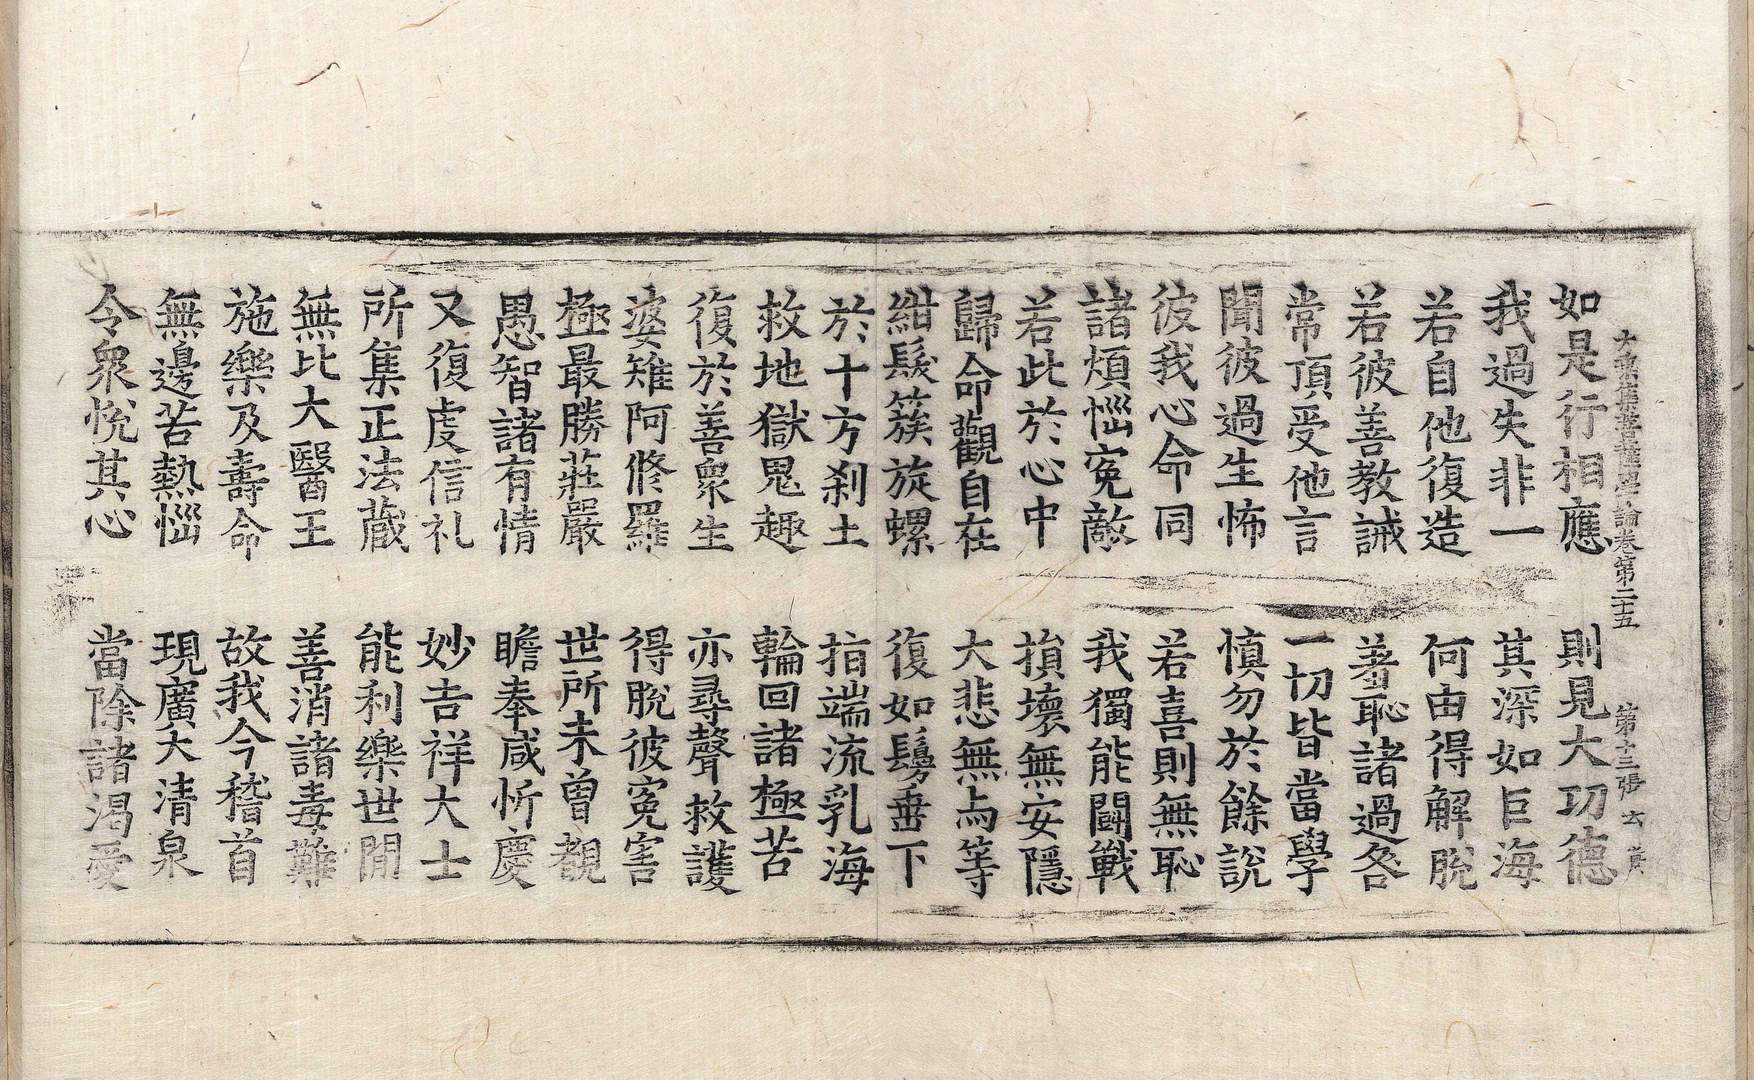 大乘集菩薩學論卷第二十五 第十三張
如是行相應 則見大功德
我過失非一 其深如巨海
若自他復造 何由得解脫
若彼善教誡 著恥諸過咎
常頂受他言 一切皆當學
聞彼過生怖 慎勿於餘說
彼我心命同 若喜則無恥
諸煩惱寃敵 我獨能鬪戰
若此於心中 損壞無安隱
歸命觀自在 大悲無与等
紺髮簇旋螺 復如鬘垂下
於十方刹土 指端流乳海
救地獄鬼趣 輪回諸極苦
復於善衆生 亦尋聲救護
婆雉阿修羅 得脫彼寃害
極最勝莊嚴 世所未曾覩
愚智諸有情 瞻奉咸忻慶
又復虔信礼 妙吉祥大士
所集正法藏 能利樂世閒
無比大醫王 善消諸毒難
施樂及壽命 故我今稽首
無邊苦熱惱 現廣大清泉
令衆悅其心 當除諸渴愛